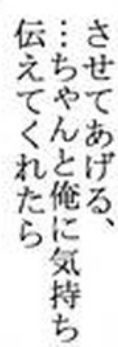 させてあげる、
…ちゃんと俺に気持ち
伝えてくれたら